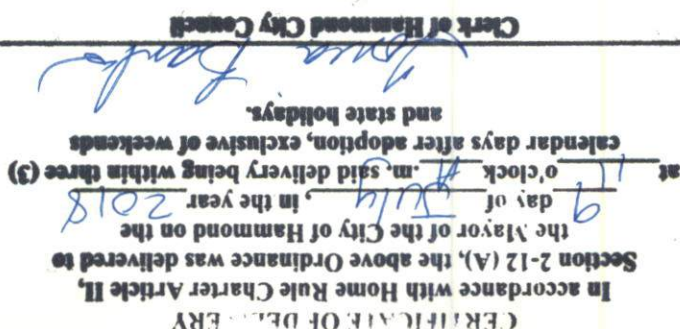 CERTIFICATE OF DELIVERY
In accordance with Home Rule Charter Article II,
Section 2-12 (A), the above Ordinance was delivered to
the Mayor of the City of Hammond on the
9 day of July, in the year 2018
at 11 o'clock A.m, said delivery being within three (3)
calendar days after adoption, exclusive of weekends
and state holidays.
Tonia Banks
Clerk of Hammond City Council